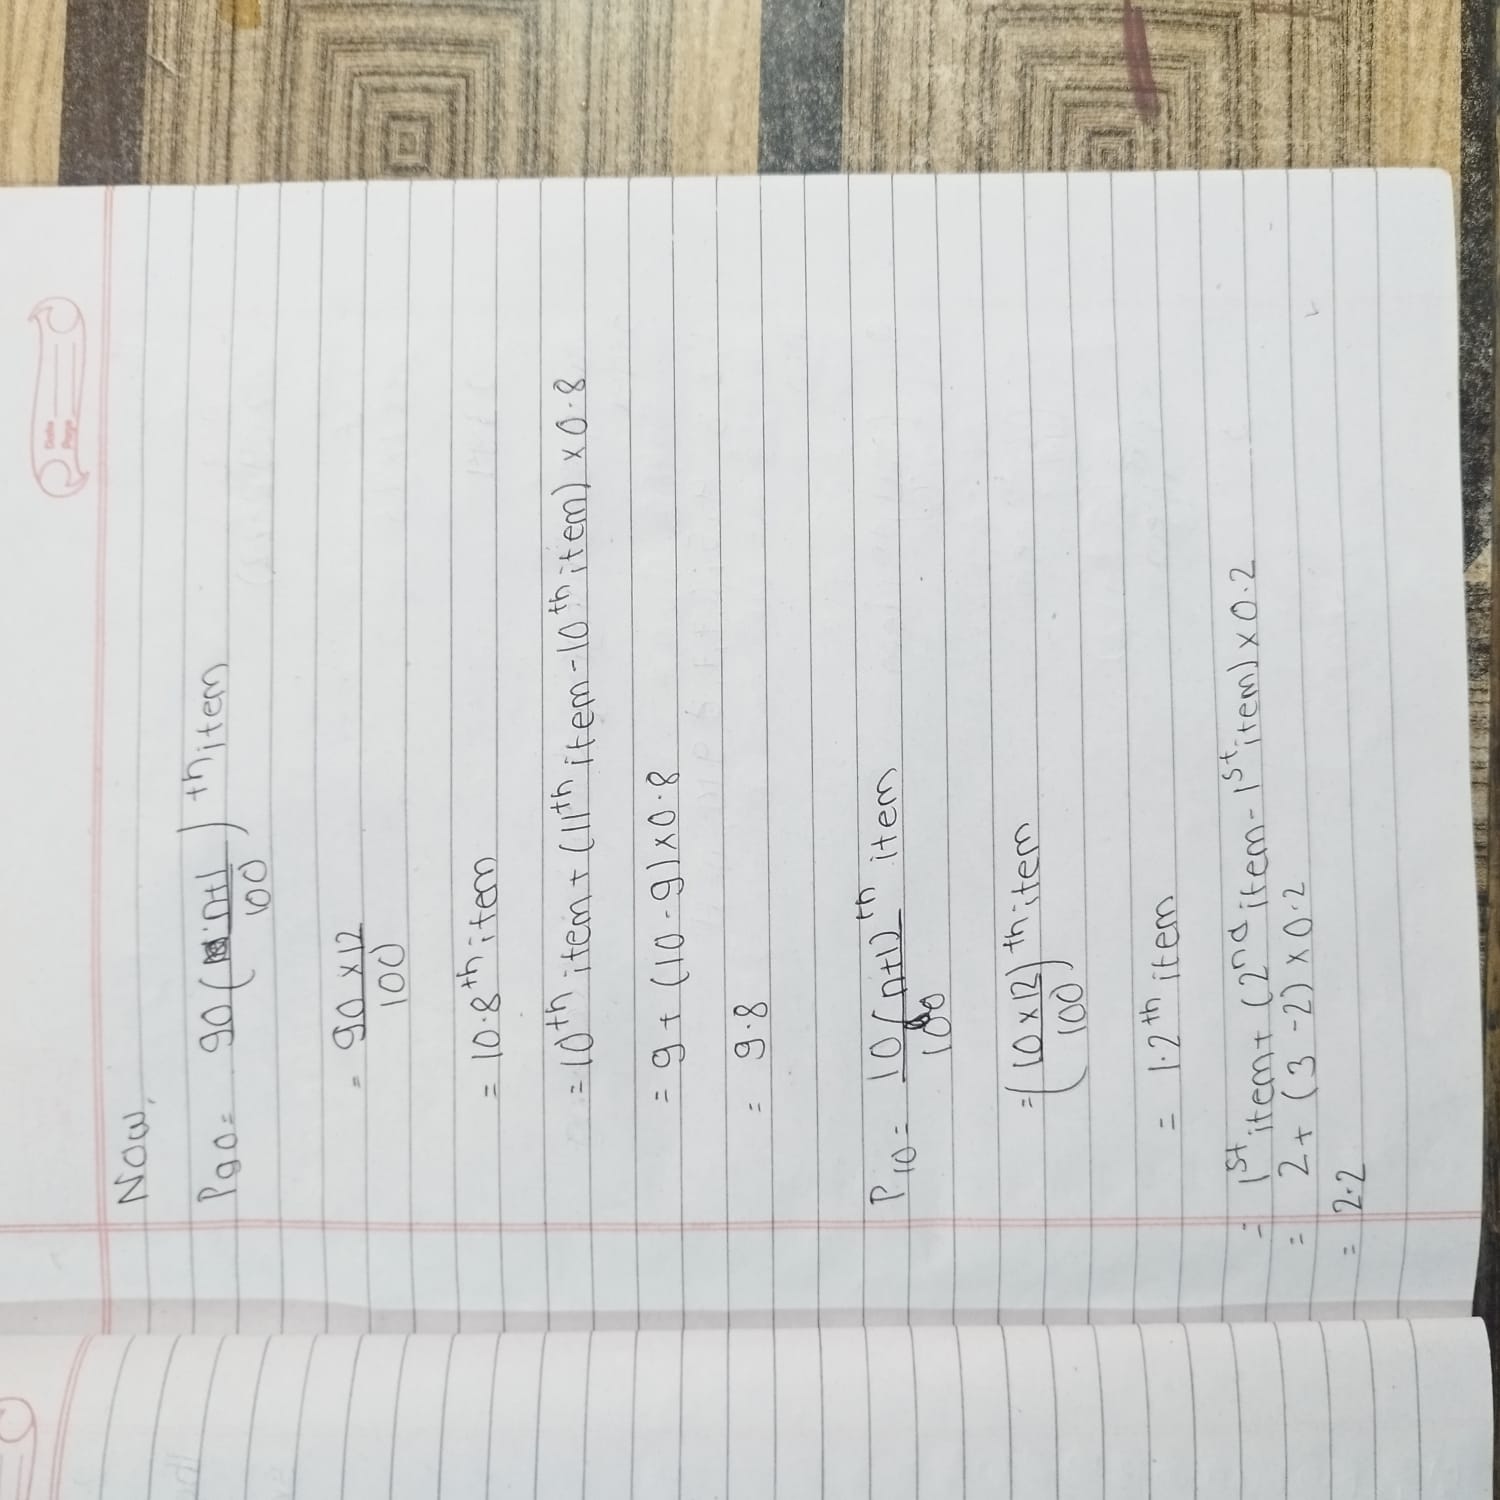 Date
Page
Now,
P90 = 90 (n+1/100)th item
= 90 × 12/100
= 10.8th item
= 10th item + (11th item - 10th item) × 0.8
= 9 + (10 - 9) × 0.8
= 9.8
P10 = 10(n+1)th/100 item
= (10 × 12/100)th item
= 1.2th item
= 1st item + (2nd item - 1st item) × 0.2
= 2 + (3 - 2) × 0.2
= 2.2